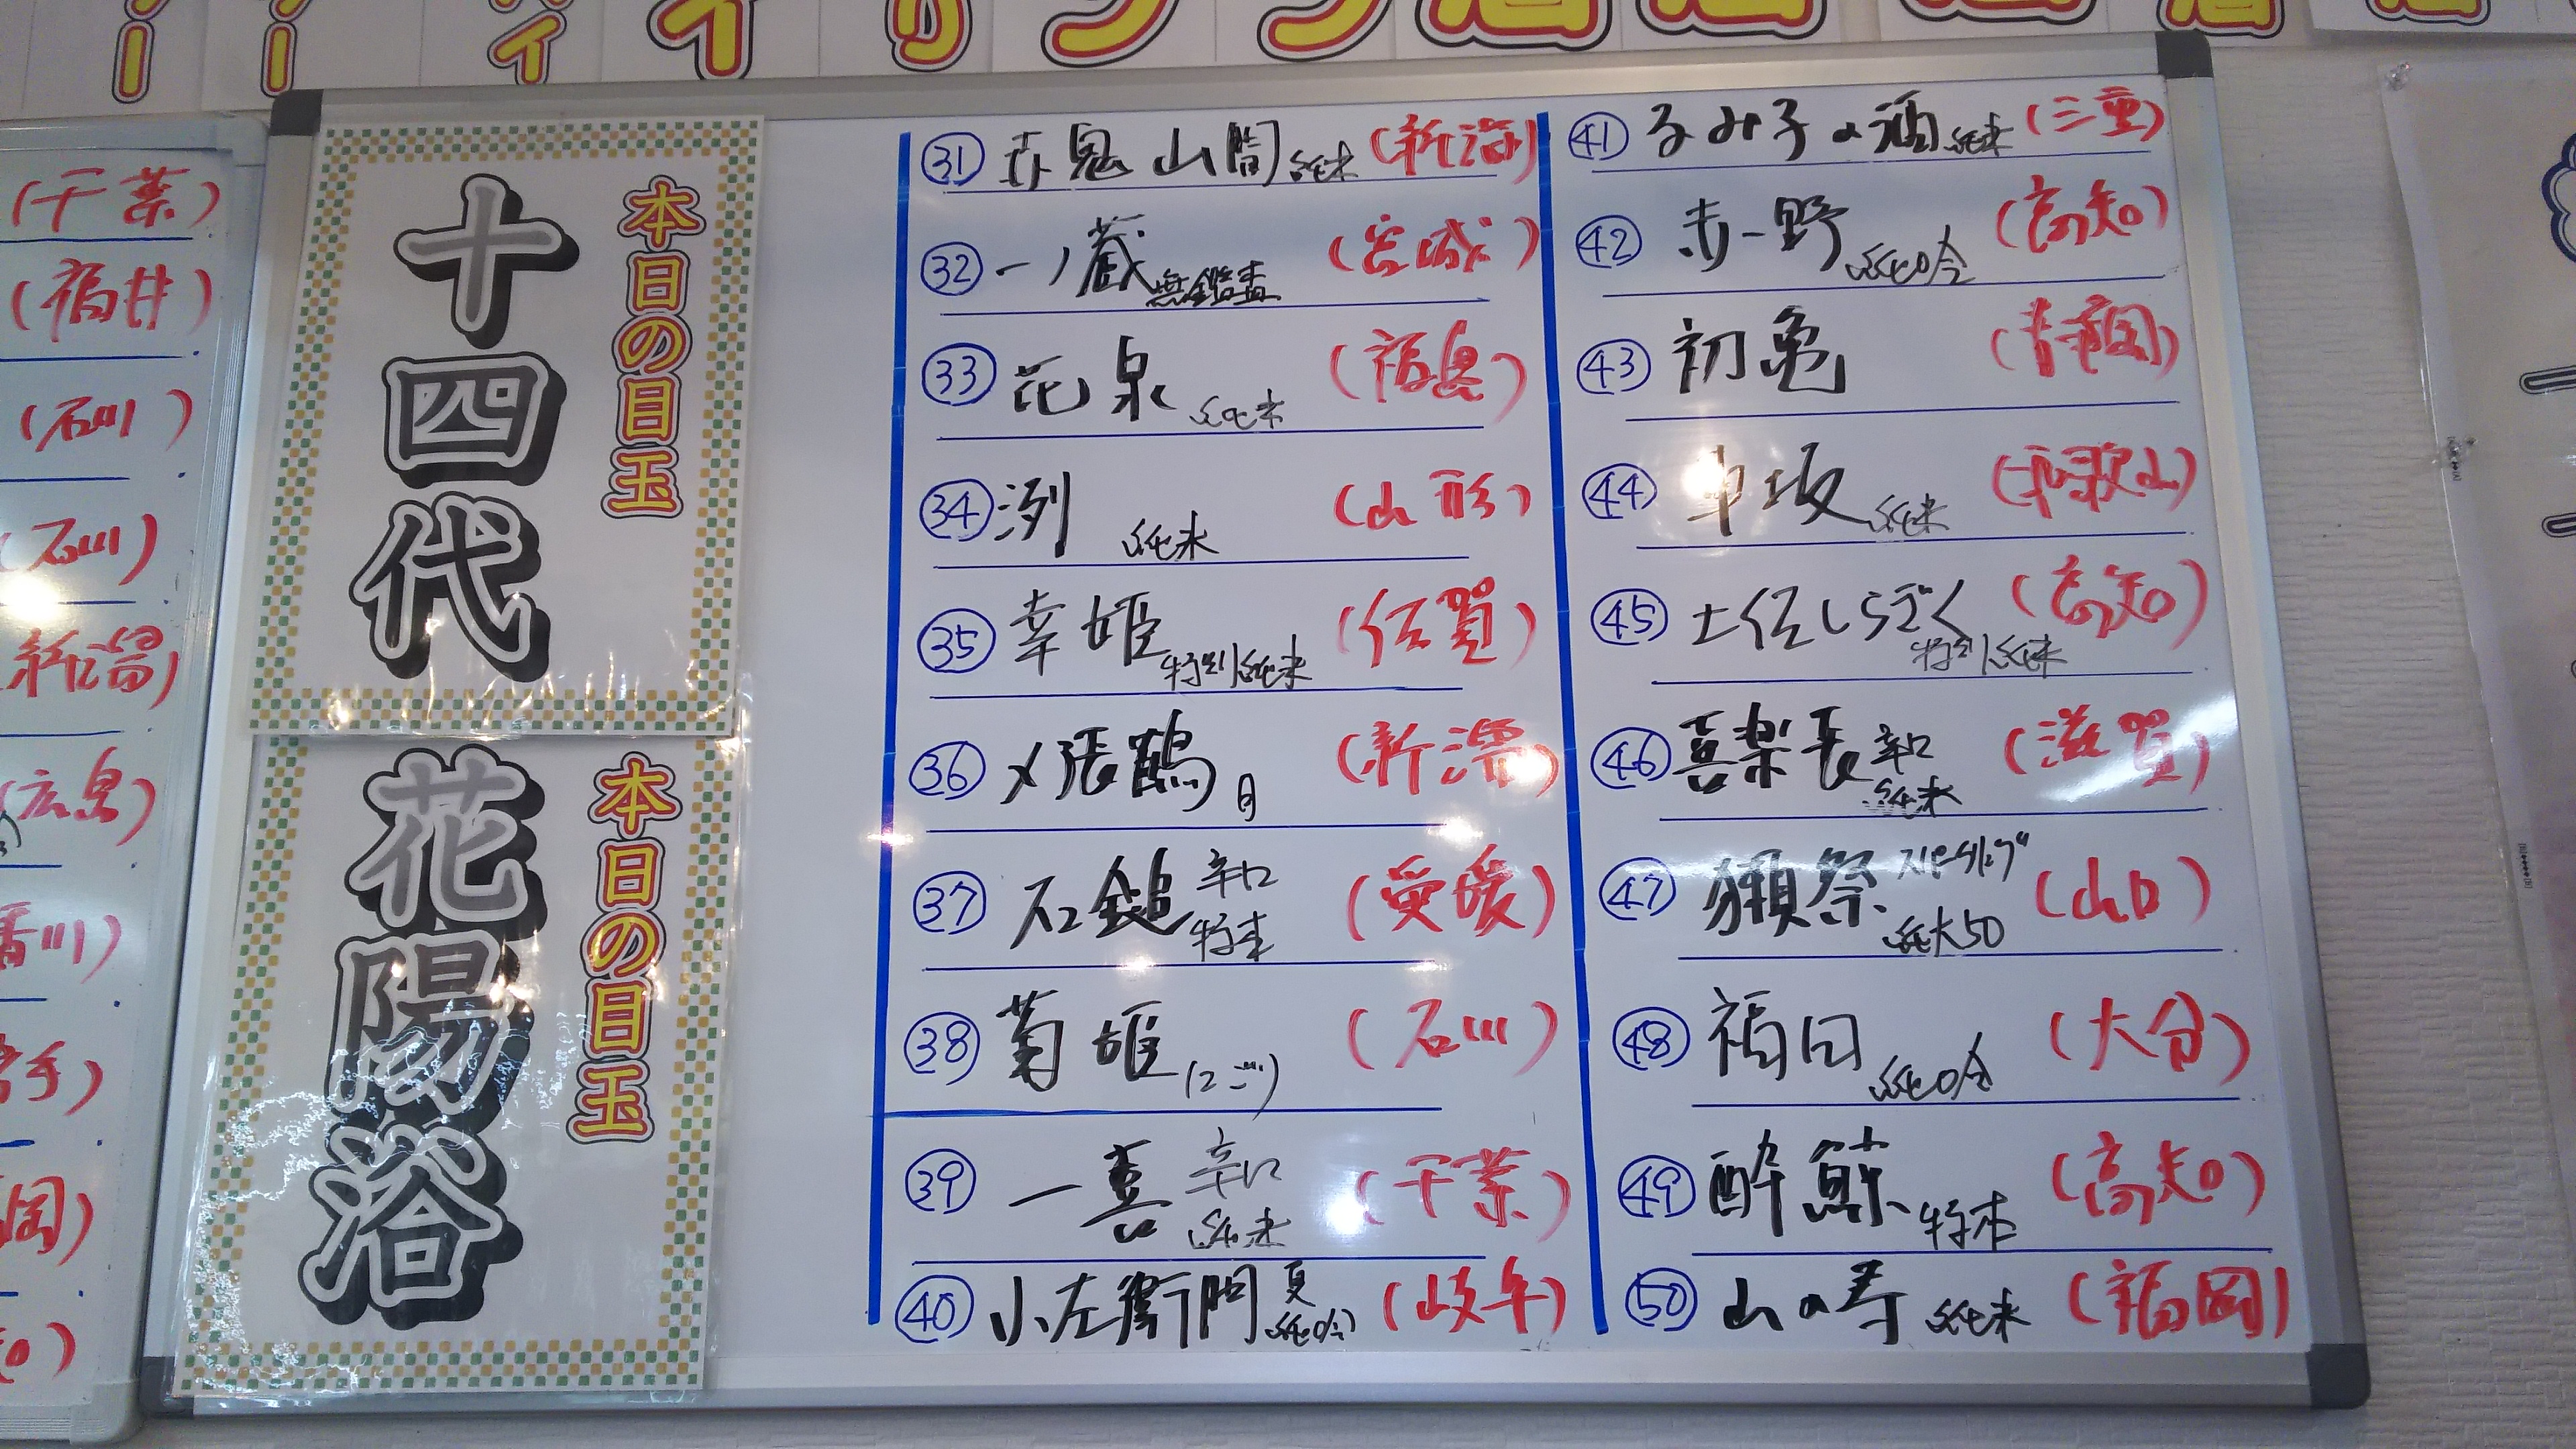 (千葉)
(福井)
(石川)
(石川)
新潟)
(広島)
香川)
岩手)
岡)
本日の目玉
十四代
本日の目玉
花陽浴
㉛ 赤鬼山間 純米 (新潟)
㉜ 一ノ蔵 無鑑査 (宮城)
㉝ 花泉 純米 (福島)
㉞ 洌 純米 (山形)
㉟ 幸姫 特別純米 (佐賀)
㊱ 〆張鶴 月 (新潟)
㊲ 石鎚 辛口 特本 (愛媛)
㊳ 菊姫 (にごり) (石川)
㊴ 一喜 辛口 純米 (千葉)
㊵ 小左衛門 夏 純吟 (岐阜)
㊶ るみ子の酒 純米 (三重)
㊷ 赤野 純吟 (高知)
㊸ 初亀 (静岡)
㊹ 車坂 純米 (和歌山)
㊺ 土佐しらぎく 特別純米 (高知)
㊻ 喜楽長 辛口 純米 (滋賀)
㊼ 獺祭 スパークリング 純大50 (山口)
㊽ 福田 純吟 (大分)
㊾ 酔鯨 特本 (高知)
㊿ 山の寿 純米 (福岡)